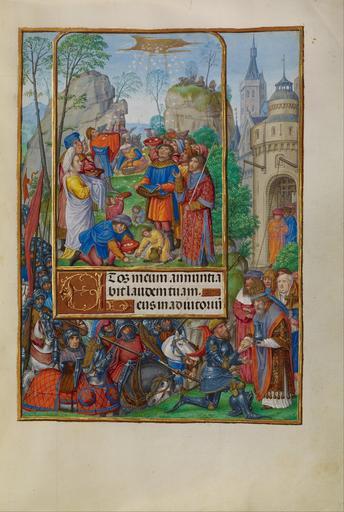 Et os meum annuntia
bit laudem tuam.
Deus in adiutoriu